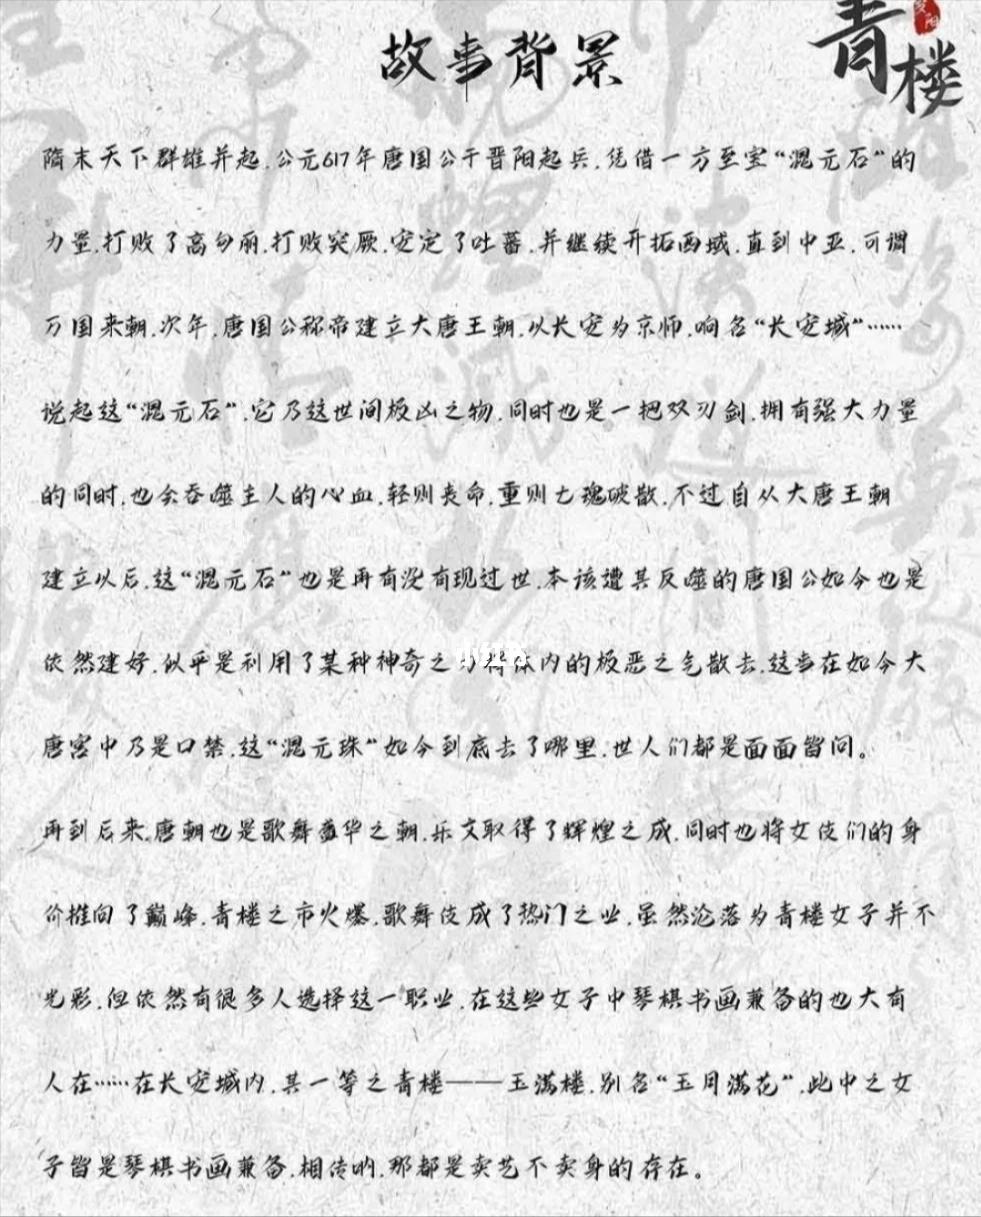 青楼
故事背景
隋末天下群雄并起.公元617年唐国公于晋阳起兵.凭借一方至宝“混元石”的
力量.打败了高句丽.打败突厥.安定了吐蕃.并继续开拓西域.直到中亚.可谓
万国来朝.次年.唐国公称帝建立大唐王朝.以长安为京师.响名“长安城”……
说起这“混元石”.它乃这世间极凶之物.同时也是一把双刃剑.拥有强大力量
的同时.也会吞噬主人的心血.轻则丧命.重则七魂破散.不过自从大唐王朝
建立以后.这“混元石”也是再有没有现过世.本该遭其反噬的唐国公如今也是
依然建好.似乎是利用了某种神奇之力将体内的极恶之气散去.这当在如今大
唐宫中乃是口禁.这“混元珠”如今到底去了哪里.世人们都是面面皆问。
再到后来.唐朝也是歌舞盛华之朝.乐文取得了辉煌之成.同时也将女伎们的身
价推向了巅峰.青楼之市火爆.歌舞伎成了热门之业.虽然沦落为青楼女子并不
光彩.但依然有很多人选择这一职业.在这些女子中琴棋书画兼备的也大有
人在……在长安城内.其一等之青楼——玉满楼.别名“玉月满花”.此中之女
子皆是琴棋书画兼备.相传呐.那都是卖艺不卖身的存在。